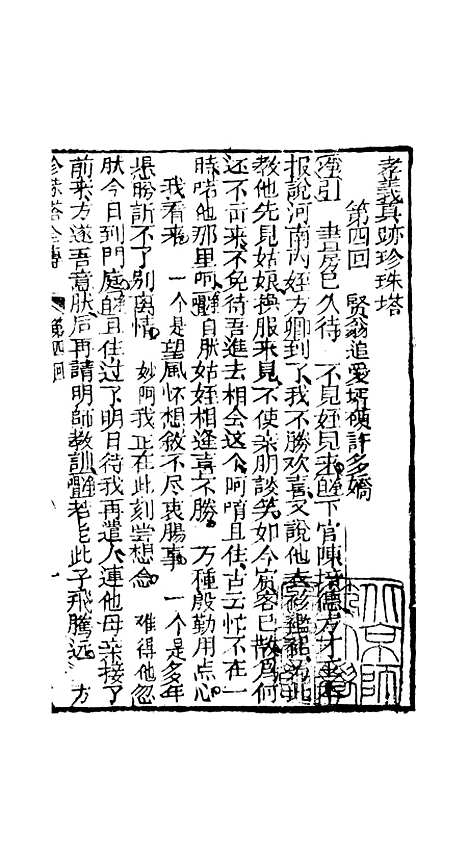 孝義真跡珍珠塔
第四回　賢翁追愛壻　碩許多嬌
引　書房已久待　不見姪兒來　下官陳德方才
报說河南內姪方卿到了我不勝欢喜又說他為此
教他先見姑娘換服來見不使亲朋談笑如今賔客已散為何
还不可來不免待吾進去相会这个呵唷且住古云忙不在一
時喏他那里呵自肰姑姪相逢喜不勝　万種殷勤用点心
我看來　一个是望風怀想敘不尽衷腸事　一个是多年
勝訴不了別离情　妙呵我正在此刻尝想念　难得他忽
肰今日到門庭且住过了明日待我再遣人連他母亲接了
前來方遂吾意肰后再請明師教訓老此子飛騰远　方
珍珠塔全傳　第四回